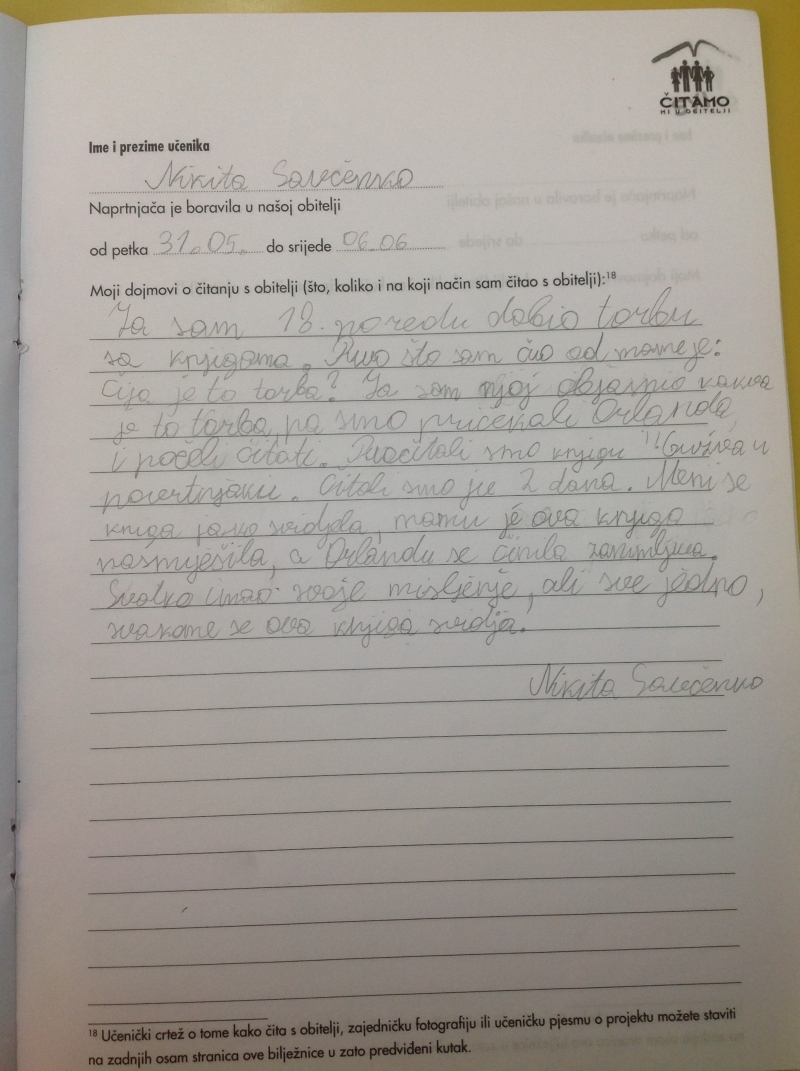 ČITAMO
MI U OBITELJI
Ime i prezime učenika
Nikita Savčenko
Naprtnjača je boravila u našoj obitelji
od petka 31.05. do srijede 06.06
Moji dojmovi o čitanju s obitelji (što, koliko i na koji način sam čitao s obitelji):18
Ja sam 18. poredu dobio torbu
sa knjigama. Prvo što sam čuo od mame je:
Čija je to torba? Ja sam njoj objasnio kakva
je to torba, pa smo pričekali Orlanda,
i počeli čitati. Pročitali smo knjigu "Gužva u
povrtnjaku. Čitali smo ju 2 dana. Meni se
knjiga jako svidjela, mamu je ova knjiga
nasmješila, a Orlandu se činila zanimljiva.
Svatko imao svoje mišljenje, ali sve jedno,
svakome se ova knjiga svidja.
Nikita Savčenko
18 Učenički crtež o tome kako čita s obitelji, zajedničku fotografiju ili učeničku pjesmu o projektu možete staviti
na zadnjih osam stranica ove bilježnice u zato predviđeni kutak.